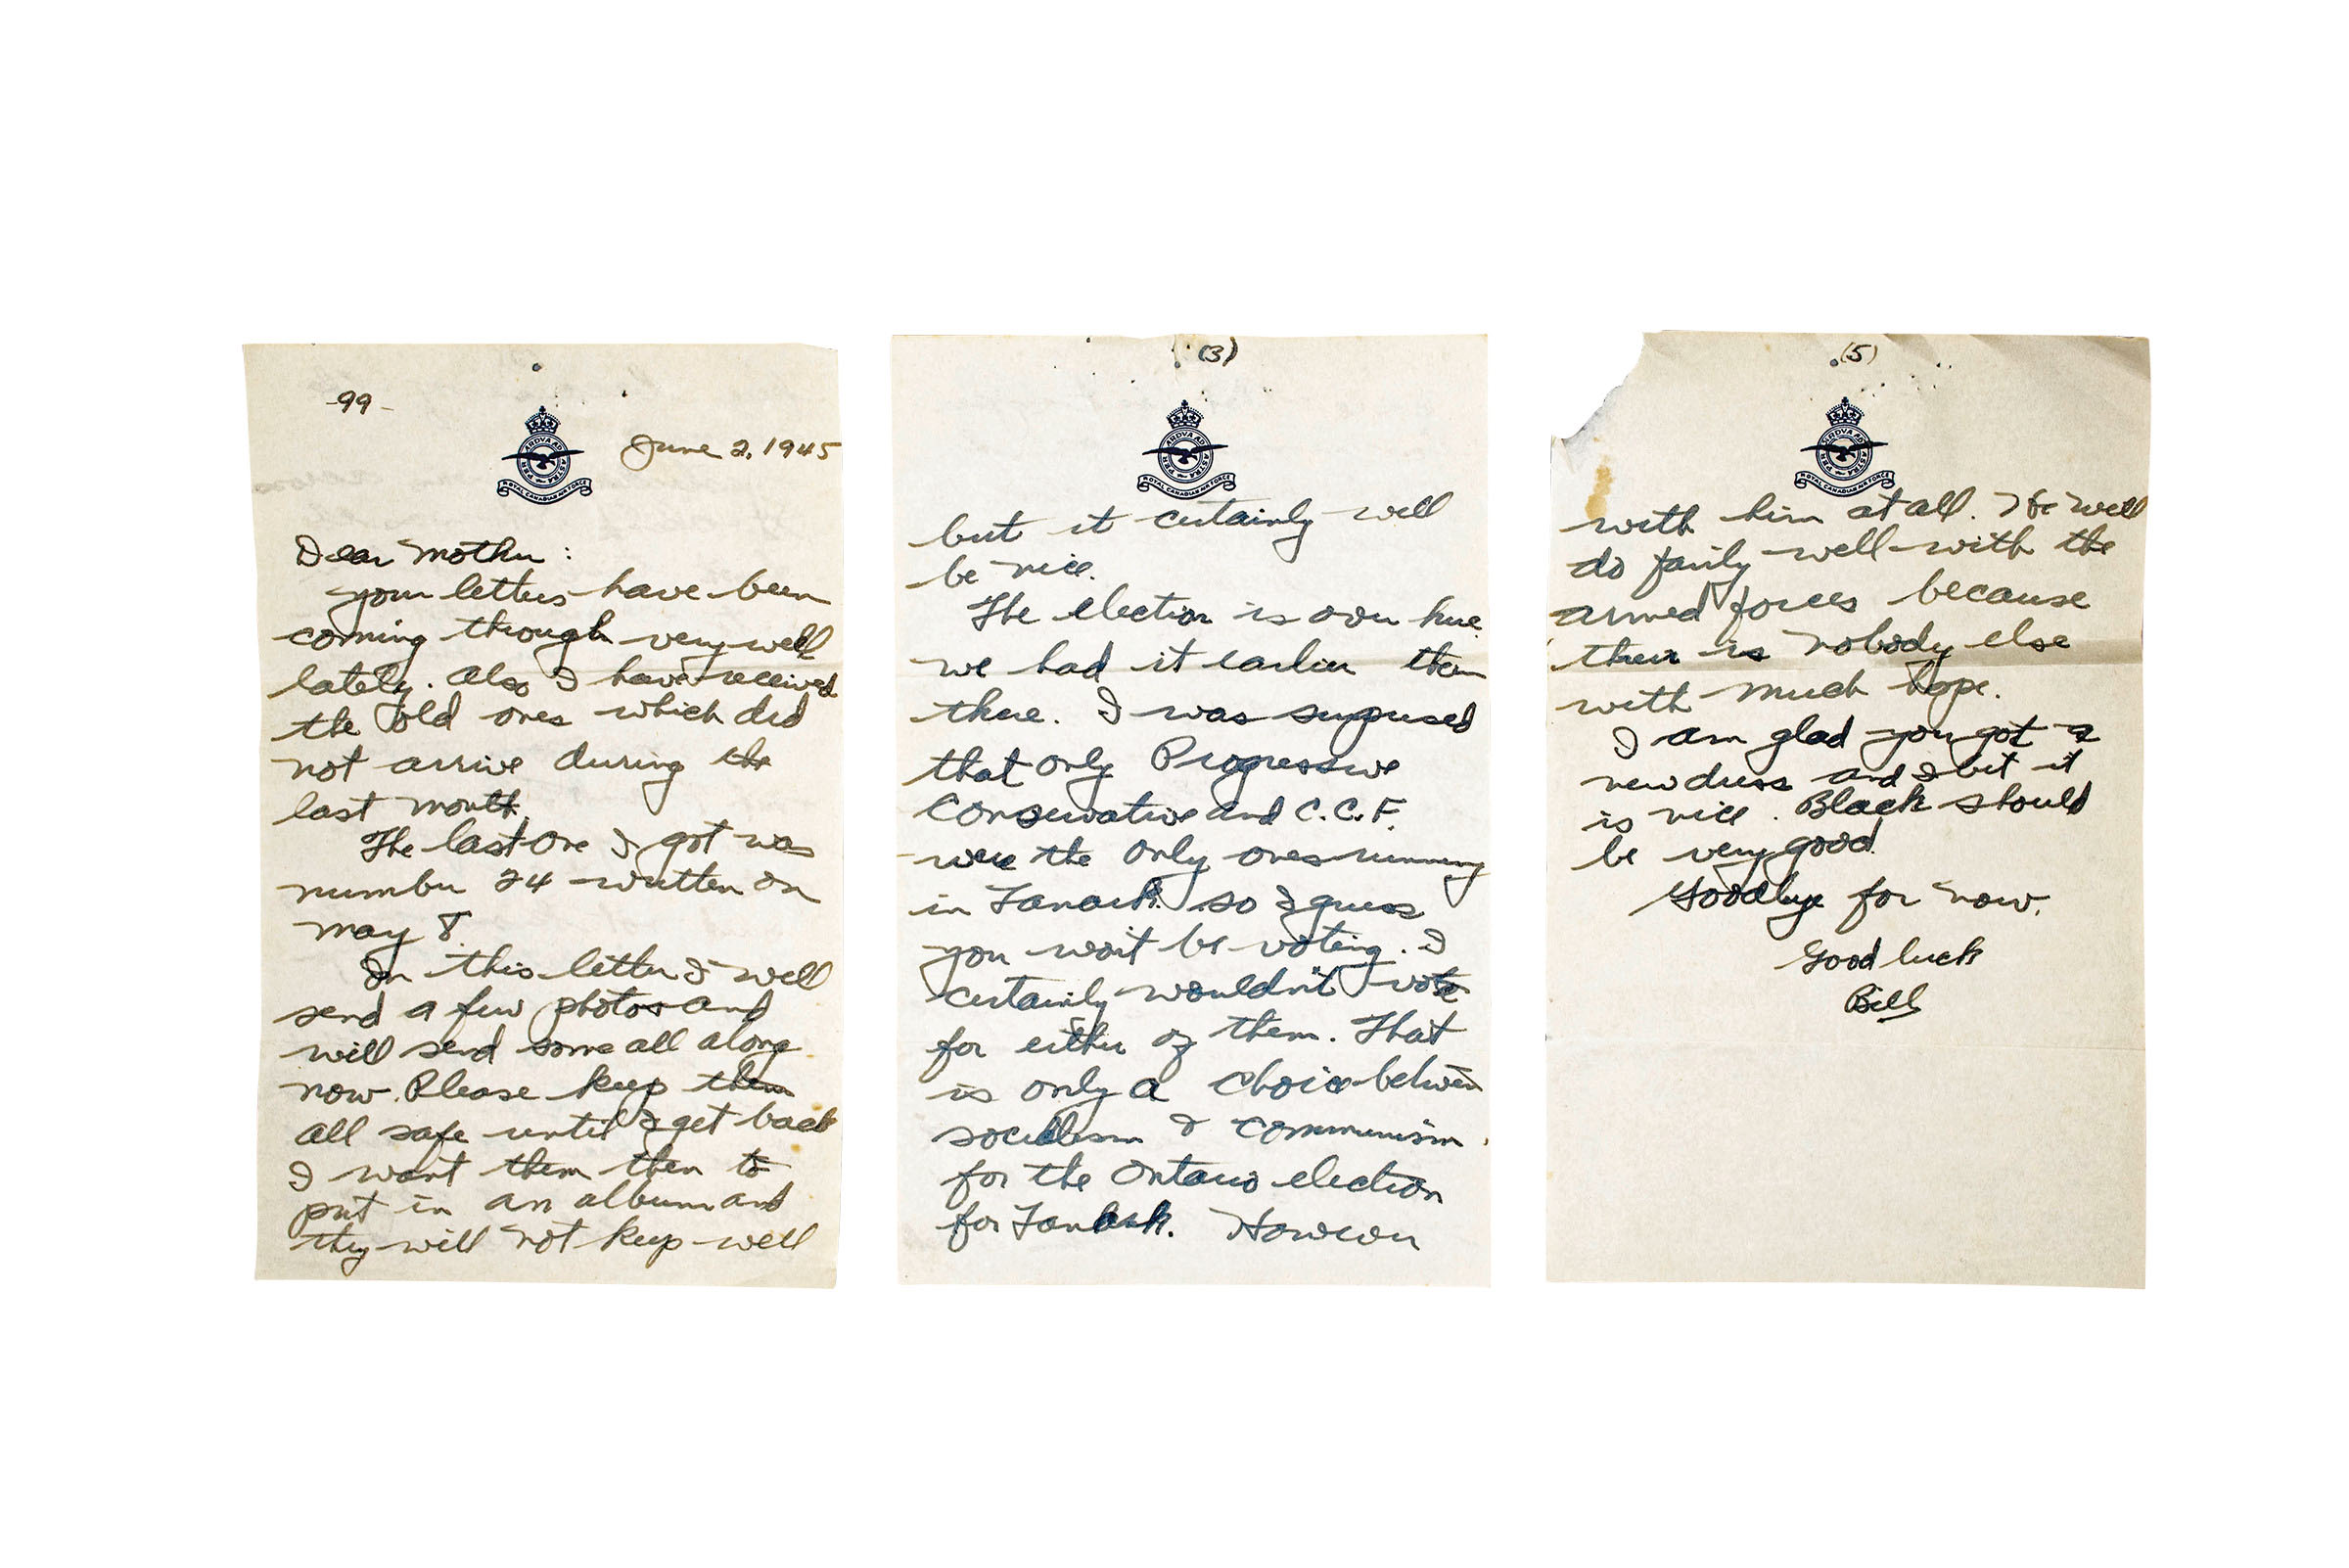 -99-
PER ARDVA AD ASTRA
ROYAL CANADIAN AIR FORCE
June 2, 1945
Dear Mother:
your letters have been
coming through very well
lately. Also I have received
the old ones which did
not arrive during the
last month.
The last one I got was
number 24 written on
May 8.
In this letter I will
send a few photos and
will send some all along
now. Please keep them
all safe until I get back
I want them then to
put in an album and
they will not keep well
(3)
PER ARDVA AD ASTRA
ROYAL CANADIAN AIR FORCE
but it certainly will
be nice.
The election is over here
we had it earlier than
there. I was surprised
that only Progressive
Conservative and C.C.F.
were the only ones running
in Lanark. so I guess
you won't be voting. I
certainly wouldn't vote
for either of them. That
is only a choice between
socialism & communism
for the Ontario election
for Lanark.
(5)
PER ARDVA AD ASTRA
ROYAL CANADIAN AIR FORCE
with him at all. He will
do fairly well with the
armed forces because
their is nobody else
with much hope.
I am glad you got a
new dress and I bet it
is nice. Black should
be very good.
Goodbye for now.
Good luck
Bill